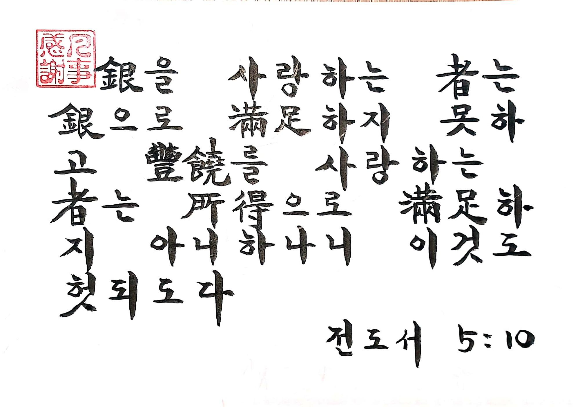 凡事
感謝
銀을 사랑하는 者는
銀으로 滿足하지 못하
고 豐饒를 사랑하는
者는 所得으로 滿足하
지 아니하나니 이것도
헛되도다
전도서 5:10